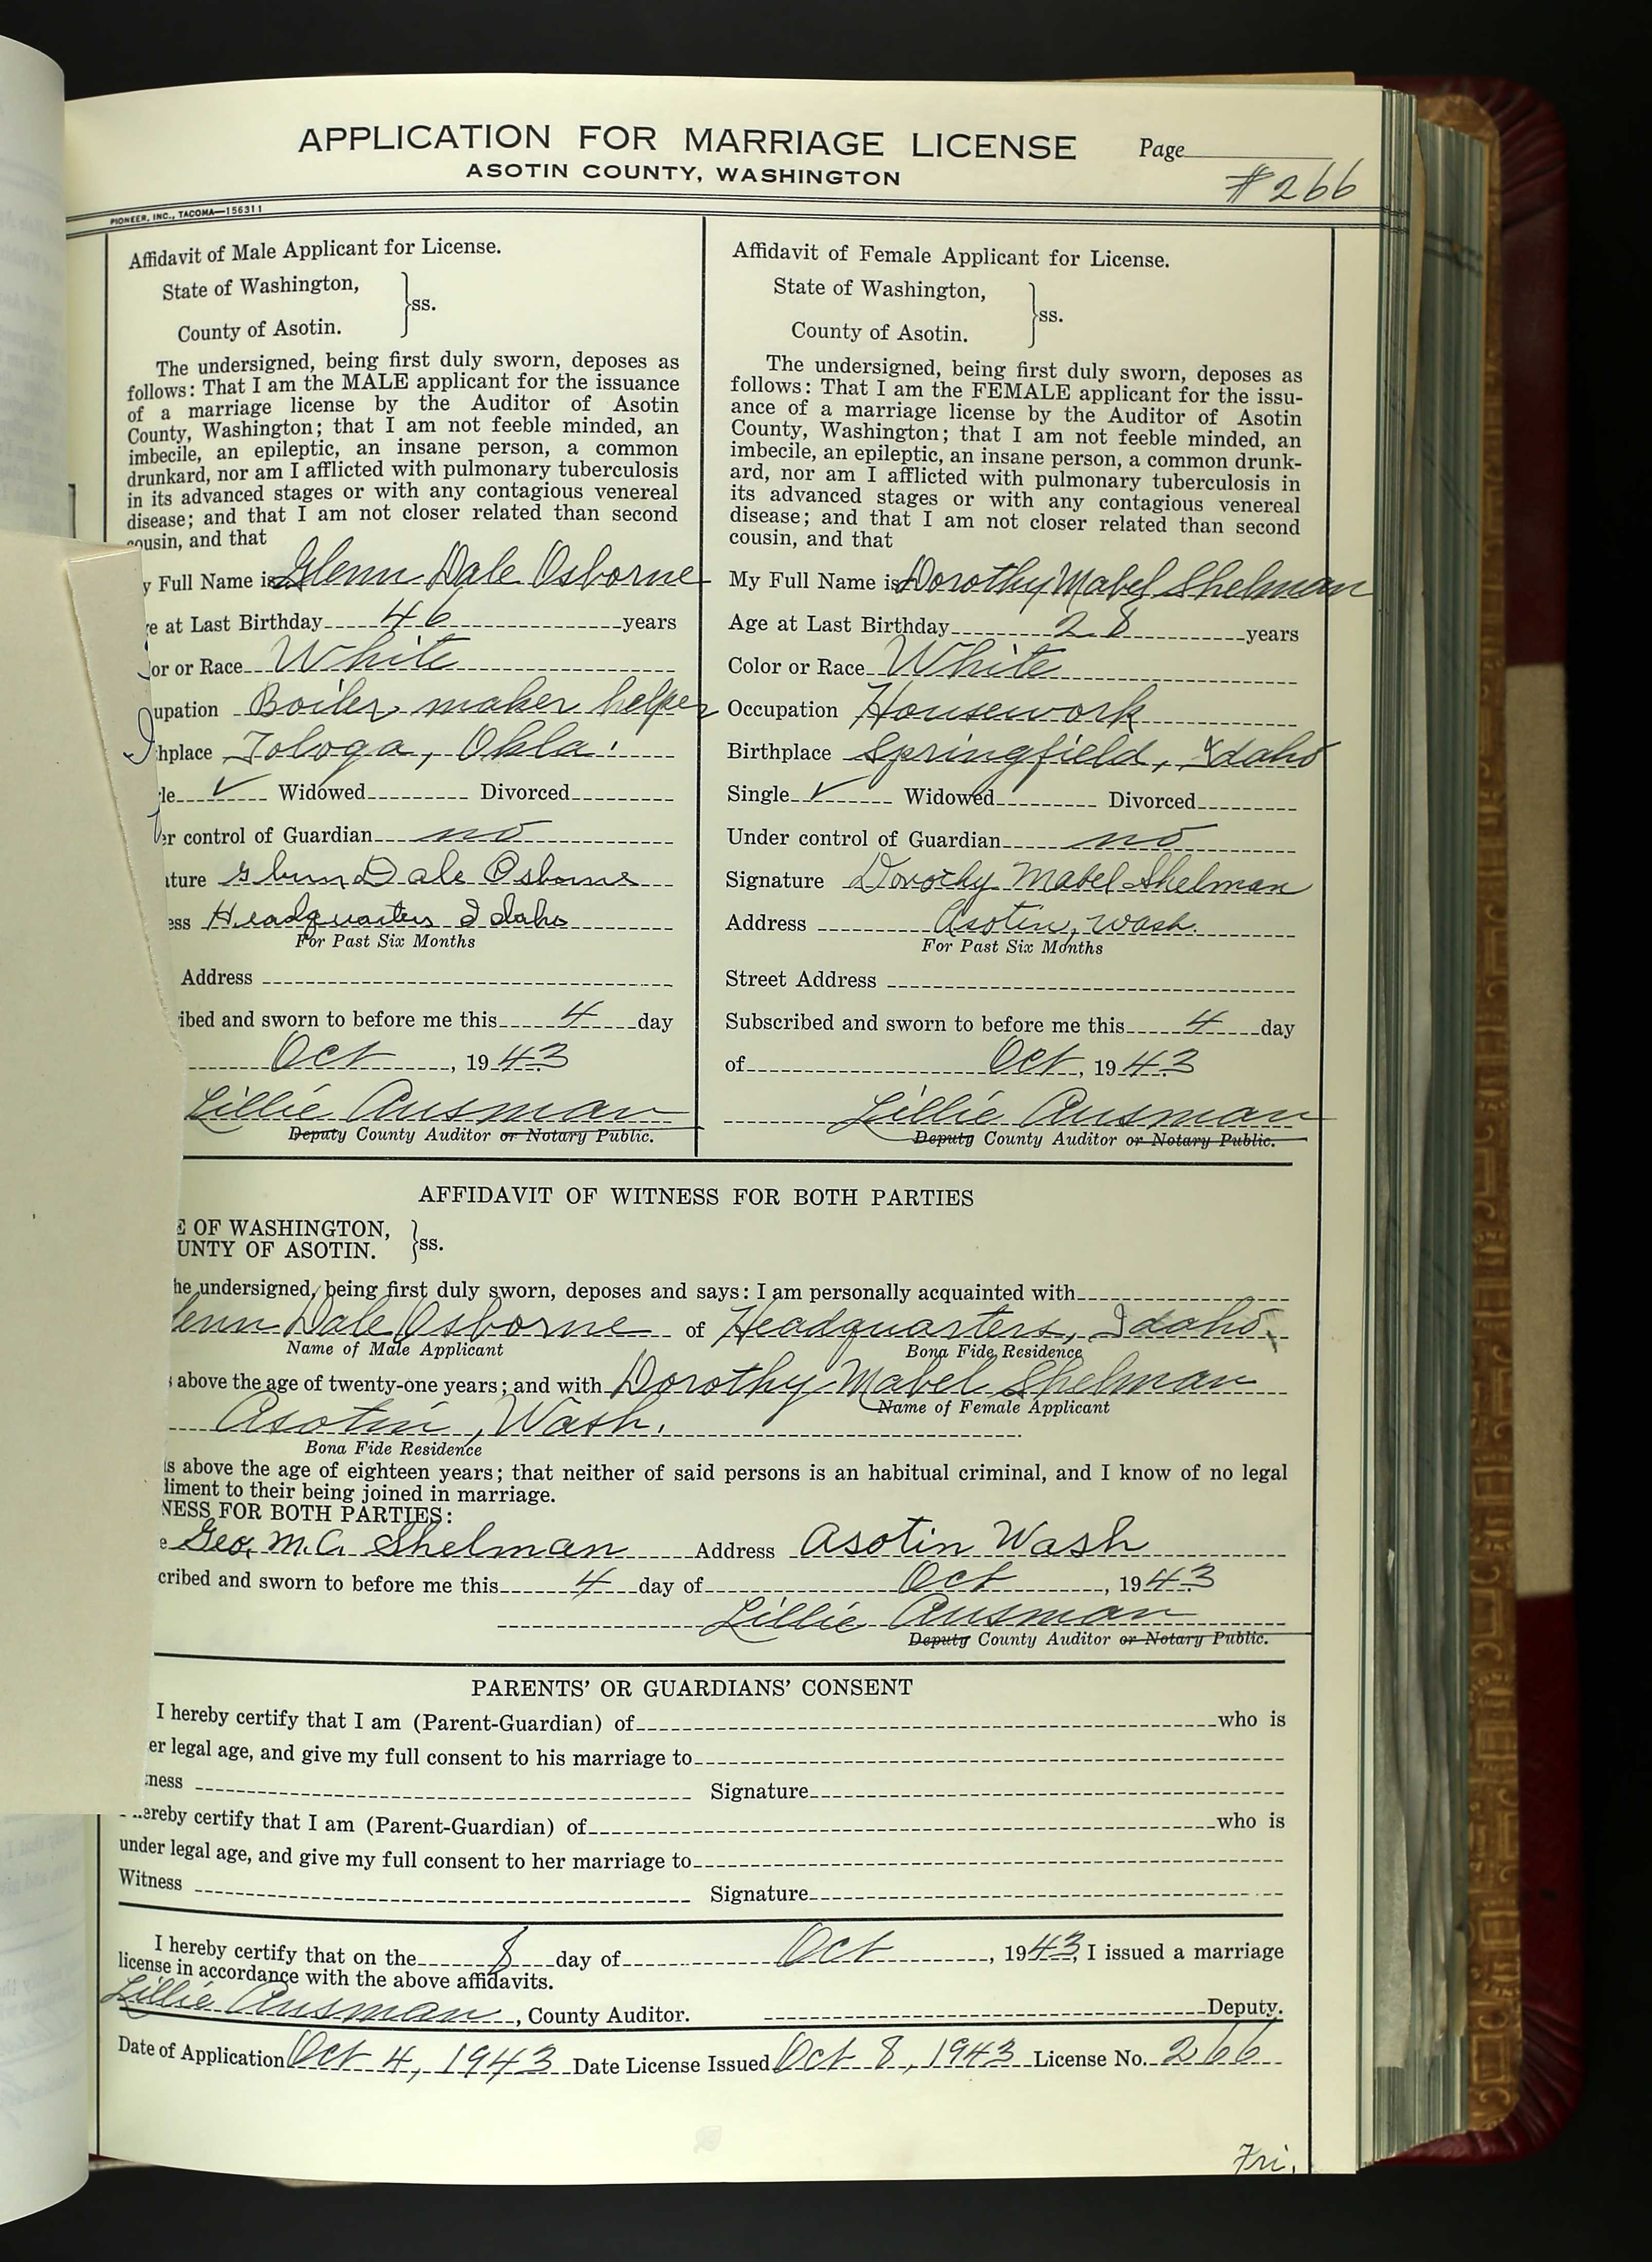 APPLICATION FOR MARRIAGE LICENSE Page
ASOTIN COUNTY, WASHINGTON
#266
PIONEER, INC., TACOMA—156311
Affidavit of Male Applicant for License.
State of Washington,
County of Asotin.
}ss.
The undersigned, being first duly sworn, deposes as
follows: That I am the MALE applicant for the issuance
of a marriage license by the Auditor of Asotin
County, Washington; that I am not feeble minded, an
imbecile, an epileptic, an insane person, a common
drunkard, nor am I afflicted with pulmonary tuberculosis
in its advanced stages or with any contagious venereal
disease; and that I am not closer related than second
cousin, and that
y Full Name is Glenn Dale Osborne
e at Last Birthday 46 years
or or Race White
upation Boiler maker helper
hplace Tologa, Okla.
le ✓ Widowed Divorced
er control of Guardian no
ture Glenn Dale Osborne
ess Headquarters Idaho
For Past Six Months
Address
ibed and sworn to before me this 4 day
Oct, 1943
Lillie Ausman
Deputy County Auditor or Notary Public.
Affidavit of Female Applicant for License.
State of Washington,
County of Asotin.
}ss.
The undersigned, being first duly sworn, deposes as
follows: That I am the FEMALE applicant for the issu-
ance of a marriage license by the Auditor of Asotin
County, Washington; that I am not feeble minded, an
imbecile, an epileptic, an insane person, a common drunk-
ard, nor am I afflicted with pulmonary tuberculosis in
its advanced stages or with any contagious venereal
disease; and that I am not closer related than second
cousin, and that
My Full Name is Dorothy Mabel Shelman
Age at Last Birthday 28 years
Color or Race White
Occupation Housework
Birthplace Springfield, Idaho
Single ✓ Widowed Divorced
Under control of Guardian no
Signature Dorothy Mabel Shelman
Address Asotin, Wash.
For Past Six Months
Street Address
Subscribed and sworn to before me this 4 day
of Oct, 1943
Lillie Ausman
Deputy County Auditor or Notary Public.
AFFIDAVIT OF WITNESS FOR BOTH PARTIES
E OF WASHINGTON,
UNTY OF ASOTIN.
}ss.
he undersigned, being first duly sworn, deposes and says: I am personally acquainted with
lenn Dale Osborne of Headquarters, Idaho,
Name of Male Applicant Bona Fide Residence
s above the age of twenty-one years; and with Dorothy Mabel Shelman
Name of Female Applicant
Asotin, Wash.
Bona Fide Residence
is above the age of eighteen years; that neither of said persons is an habitual criminal, and I know of no legal
diment to their being joined in marriage.
NESS FOR BOTH PARTIES:
e Geo. M.C. Shelman Address Asotin Wash
cribed and sworn to before me this 4 day of Oct, 1943
Lillie Ausman
Deputy County Auditor or Notary Public.
PARENTS' OR GUARDIANS' CONSENT
I hereby certify that I am (Parent-Guardian) of who is
er legal age, and give my full consent to his marriage to
ness Signature
hereby certify that I am (Parent-Guardian) of who is
under legal age, and give my full consent to her marriage to
Witness Signature
I hereby certify that on the 8 day of Oct, 1943, I issued a marriage
license in accordance with the above affidavits.
Lillie Ausman, County Auditor. Deputy.
Date of Application Oct 4, 1943 Date License Issued Oct 8, 1943 License No. 266
Fri.